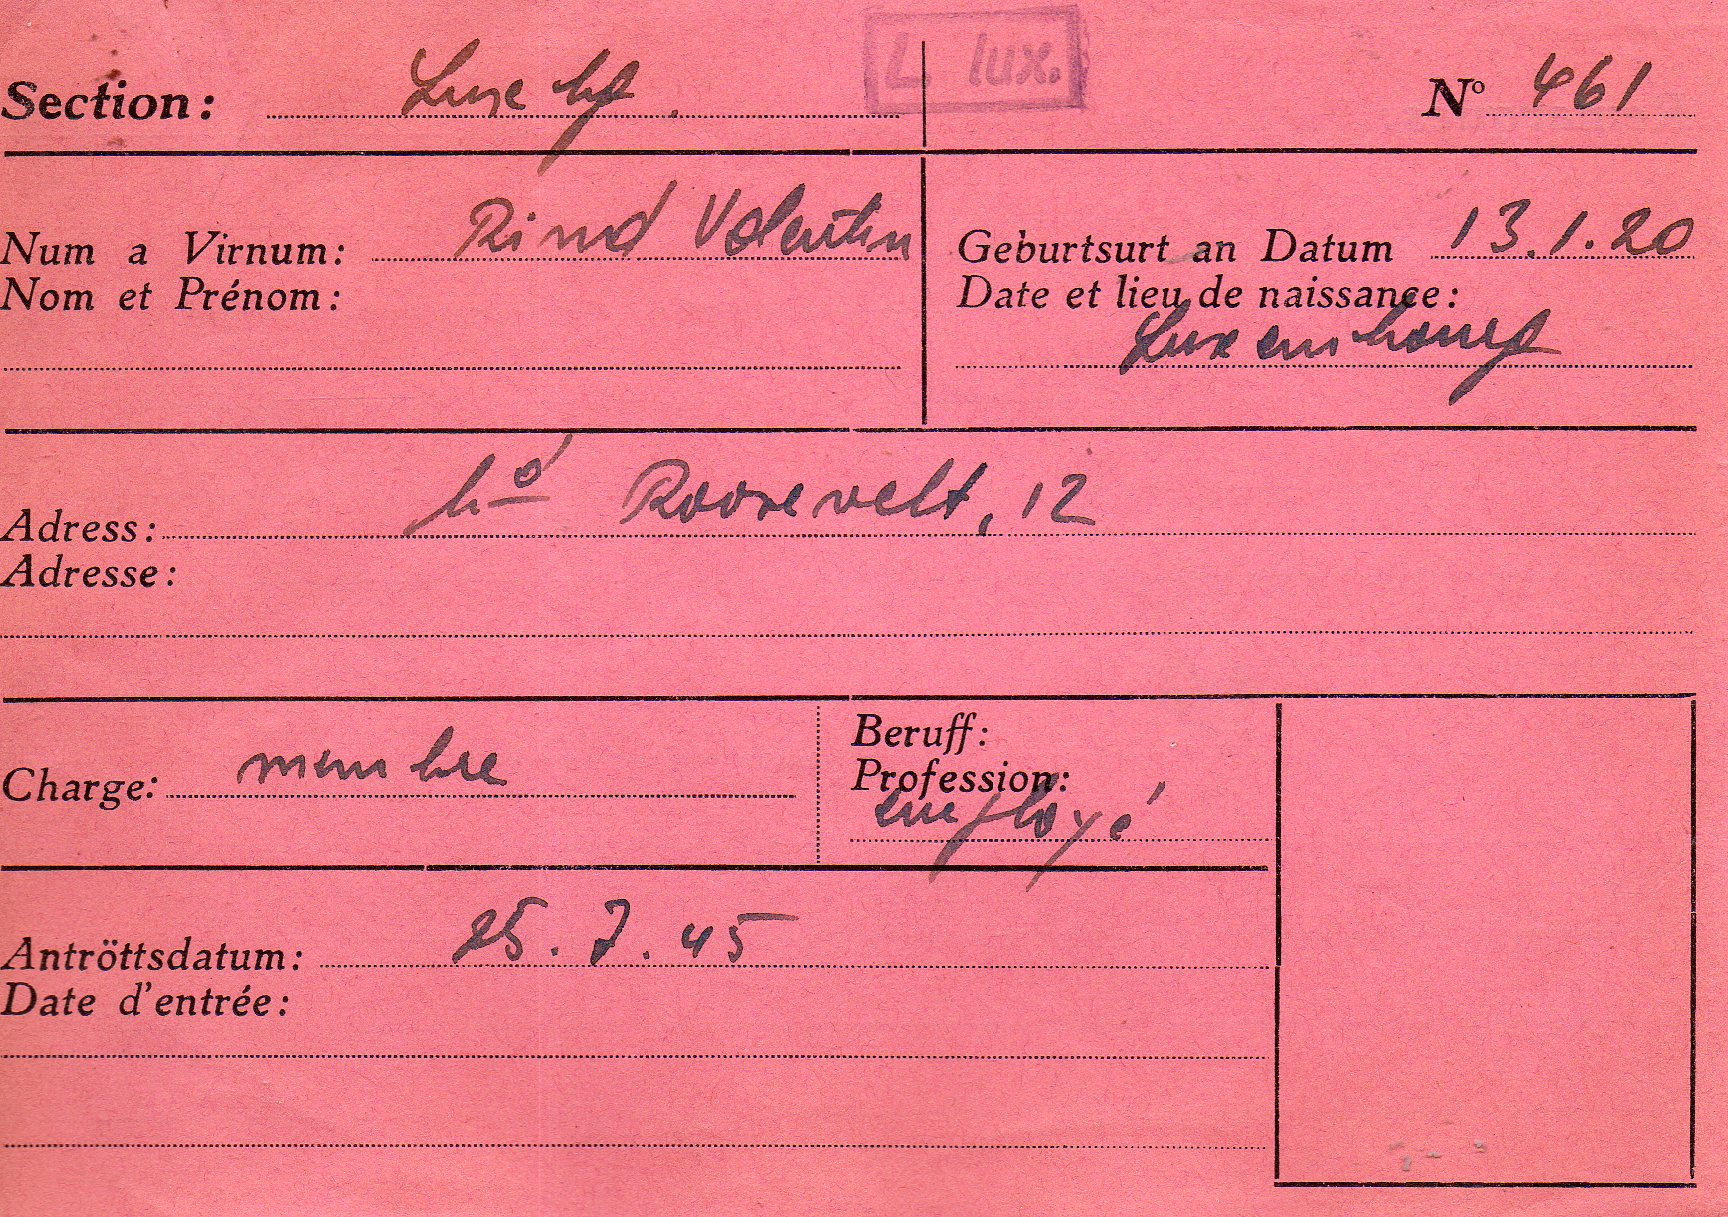 L. lux.
Section: Luxbg. N° 461
Num a Virnum: Rind Valentin
Nom et Prénom:
Geburtsurt an Datum 13.1.20
Date et lieu de naissance:
Luxembourg
Adress: bd Roosevelt, 12
Adresse:
Charge: membre
Beruff:
Profession:
employé
Antröttsdatum: 25.7.45
Date d'entrée: